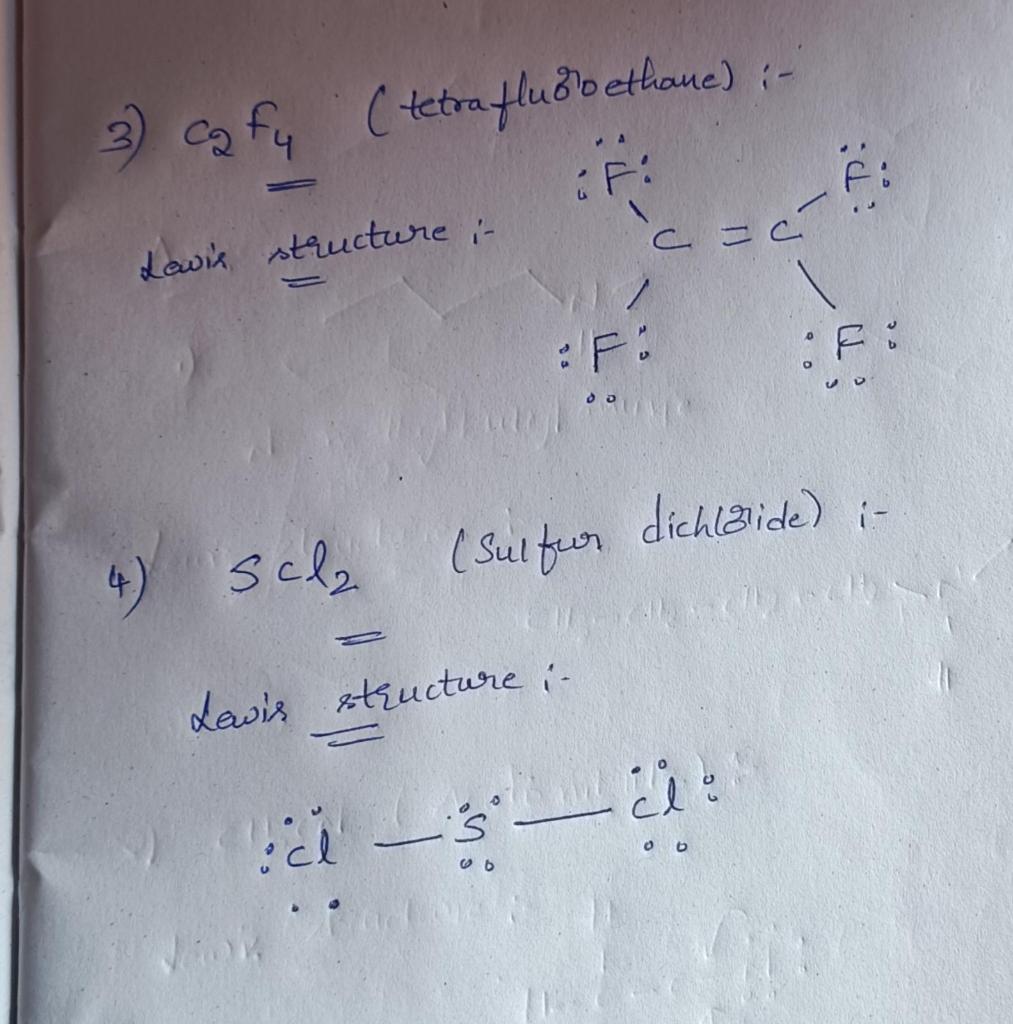 3) C2F4 (tetrafluoroethane) :-
Lewis structure :-
:F: F:
C = C
:F: :F:
4) SCl2 (Sulfur dichloride) :-
Lewis structure :-
:Cl — S — Cl: